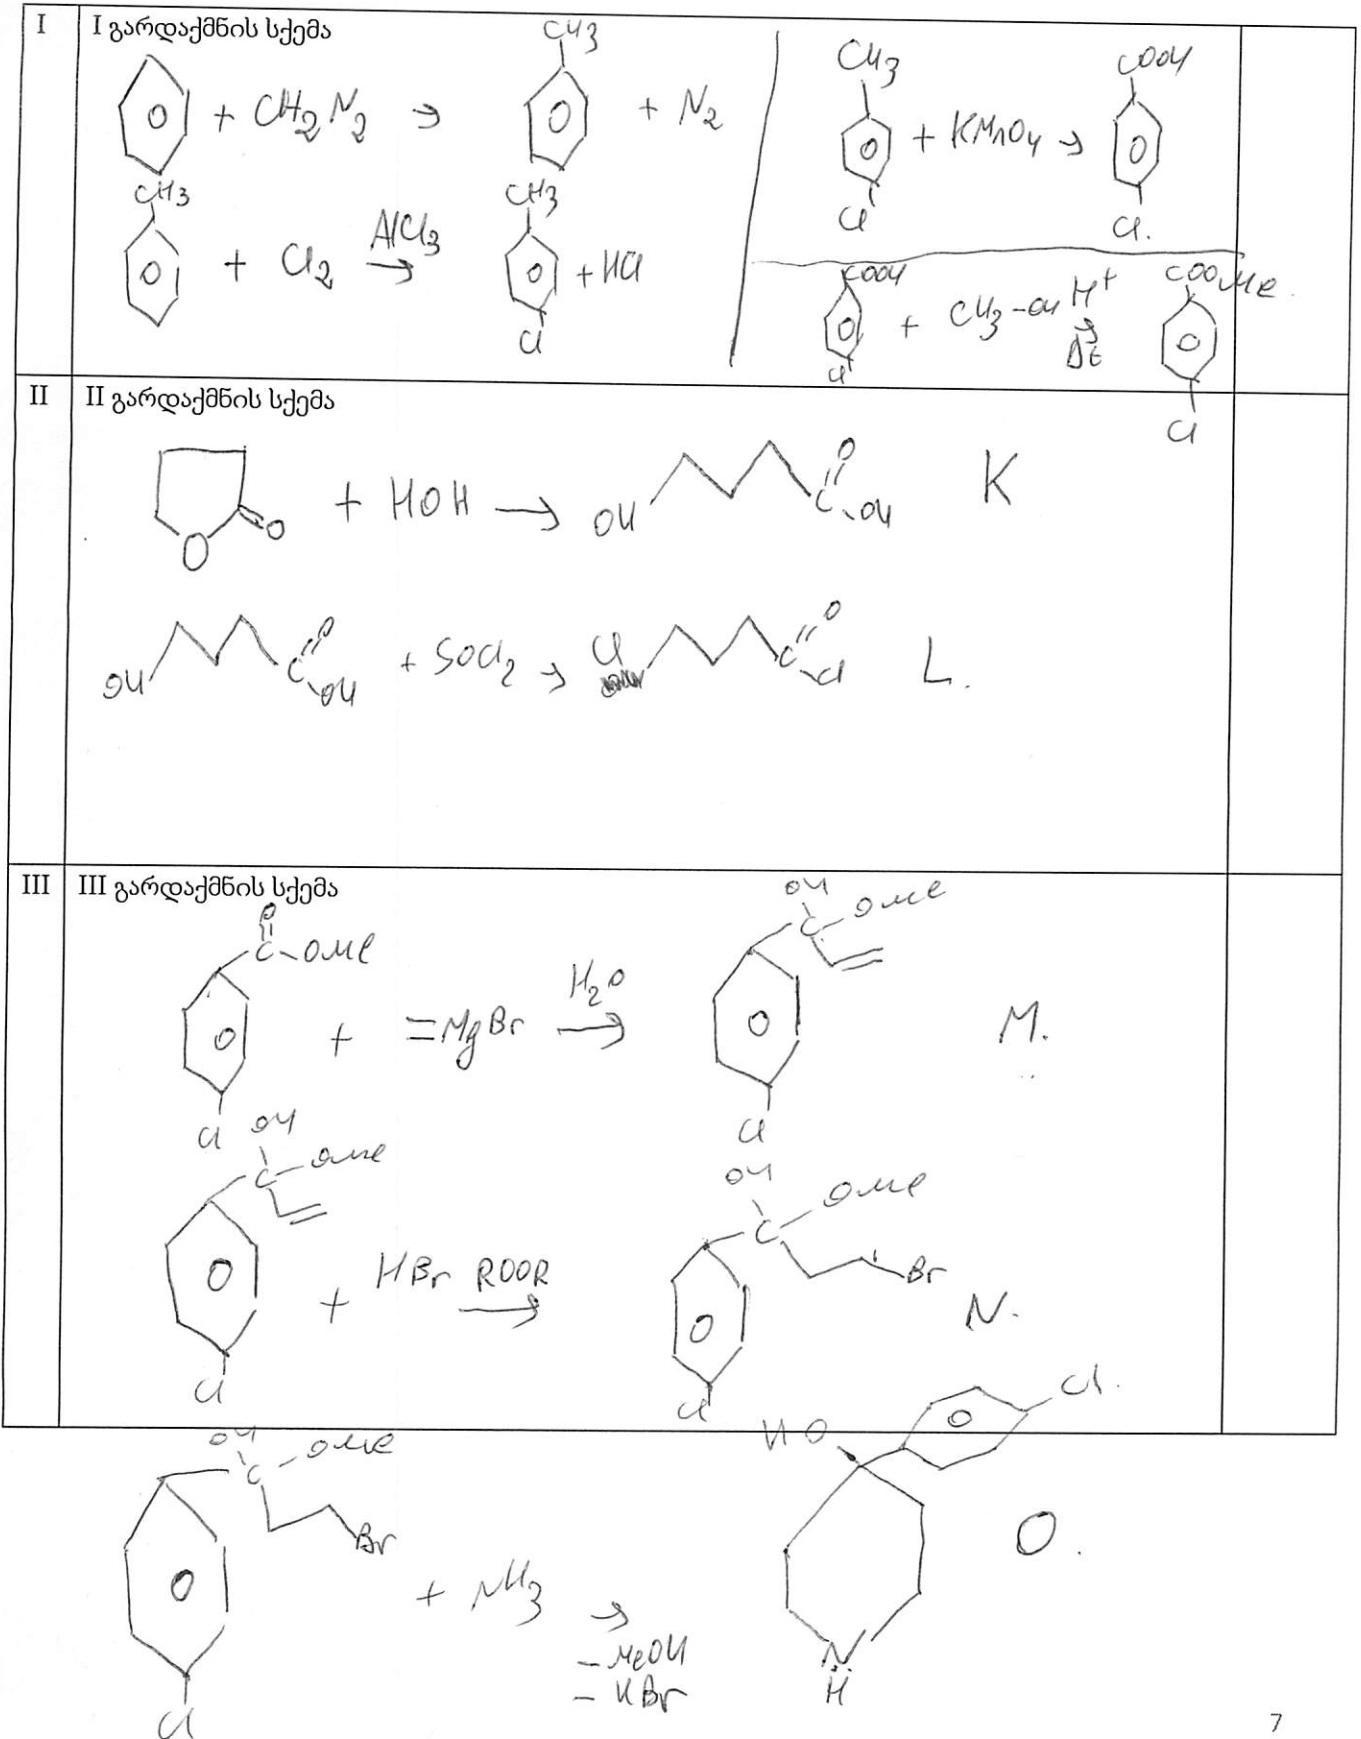 I
I გარდაქმნის სქემა
+ CH2N2 → CH3 + N2
CH3 + Cl2 AlCl3 → CH3 Cl + HCl
CH3 Cl + KMnO4 → COOH Cl.
COOH Cl + CH3-OH H+ → Δt COOMe. Cl
II
II გარდაქმნის სქემა
O O + HOH → OH C O OH K
OH C O OH + SOCl2 → Cl C O Cl L.
III
III გარდაქმნის სქემა
C O OMe Cl + =MgBr H2O → OH C OMe Cl M.
OH C OMe Cl + HBr ROOR → OH C OMe Br Cl N.
OH C OMe Br Cl + NH3 → - MeOH - HBr HO Cl. N H O.
7